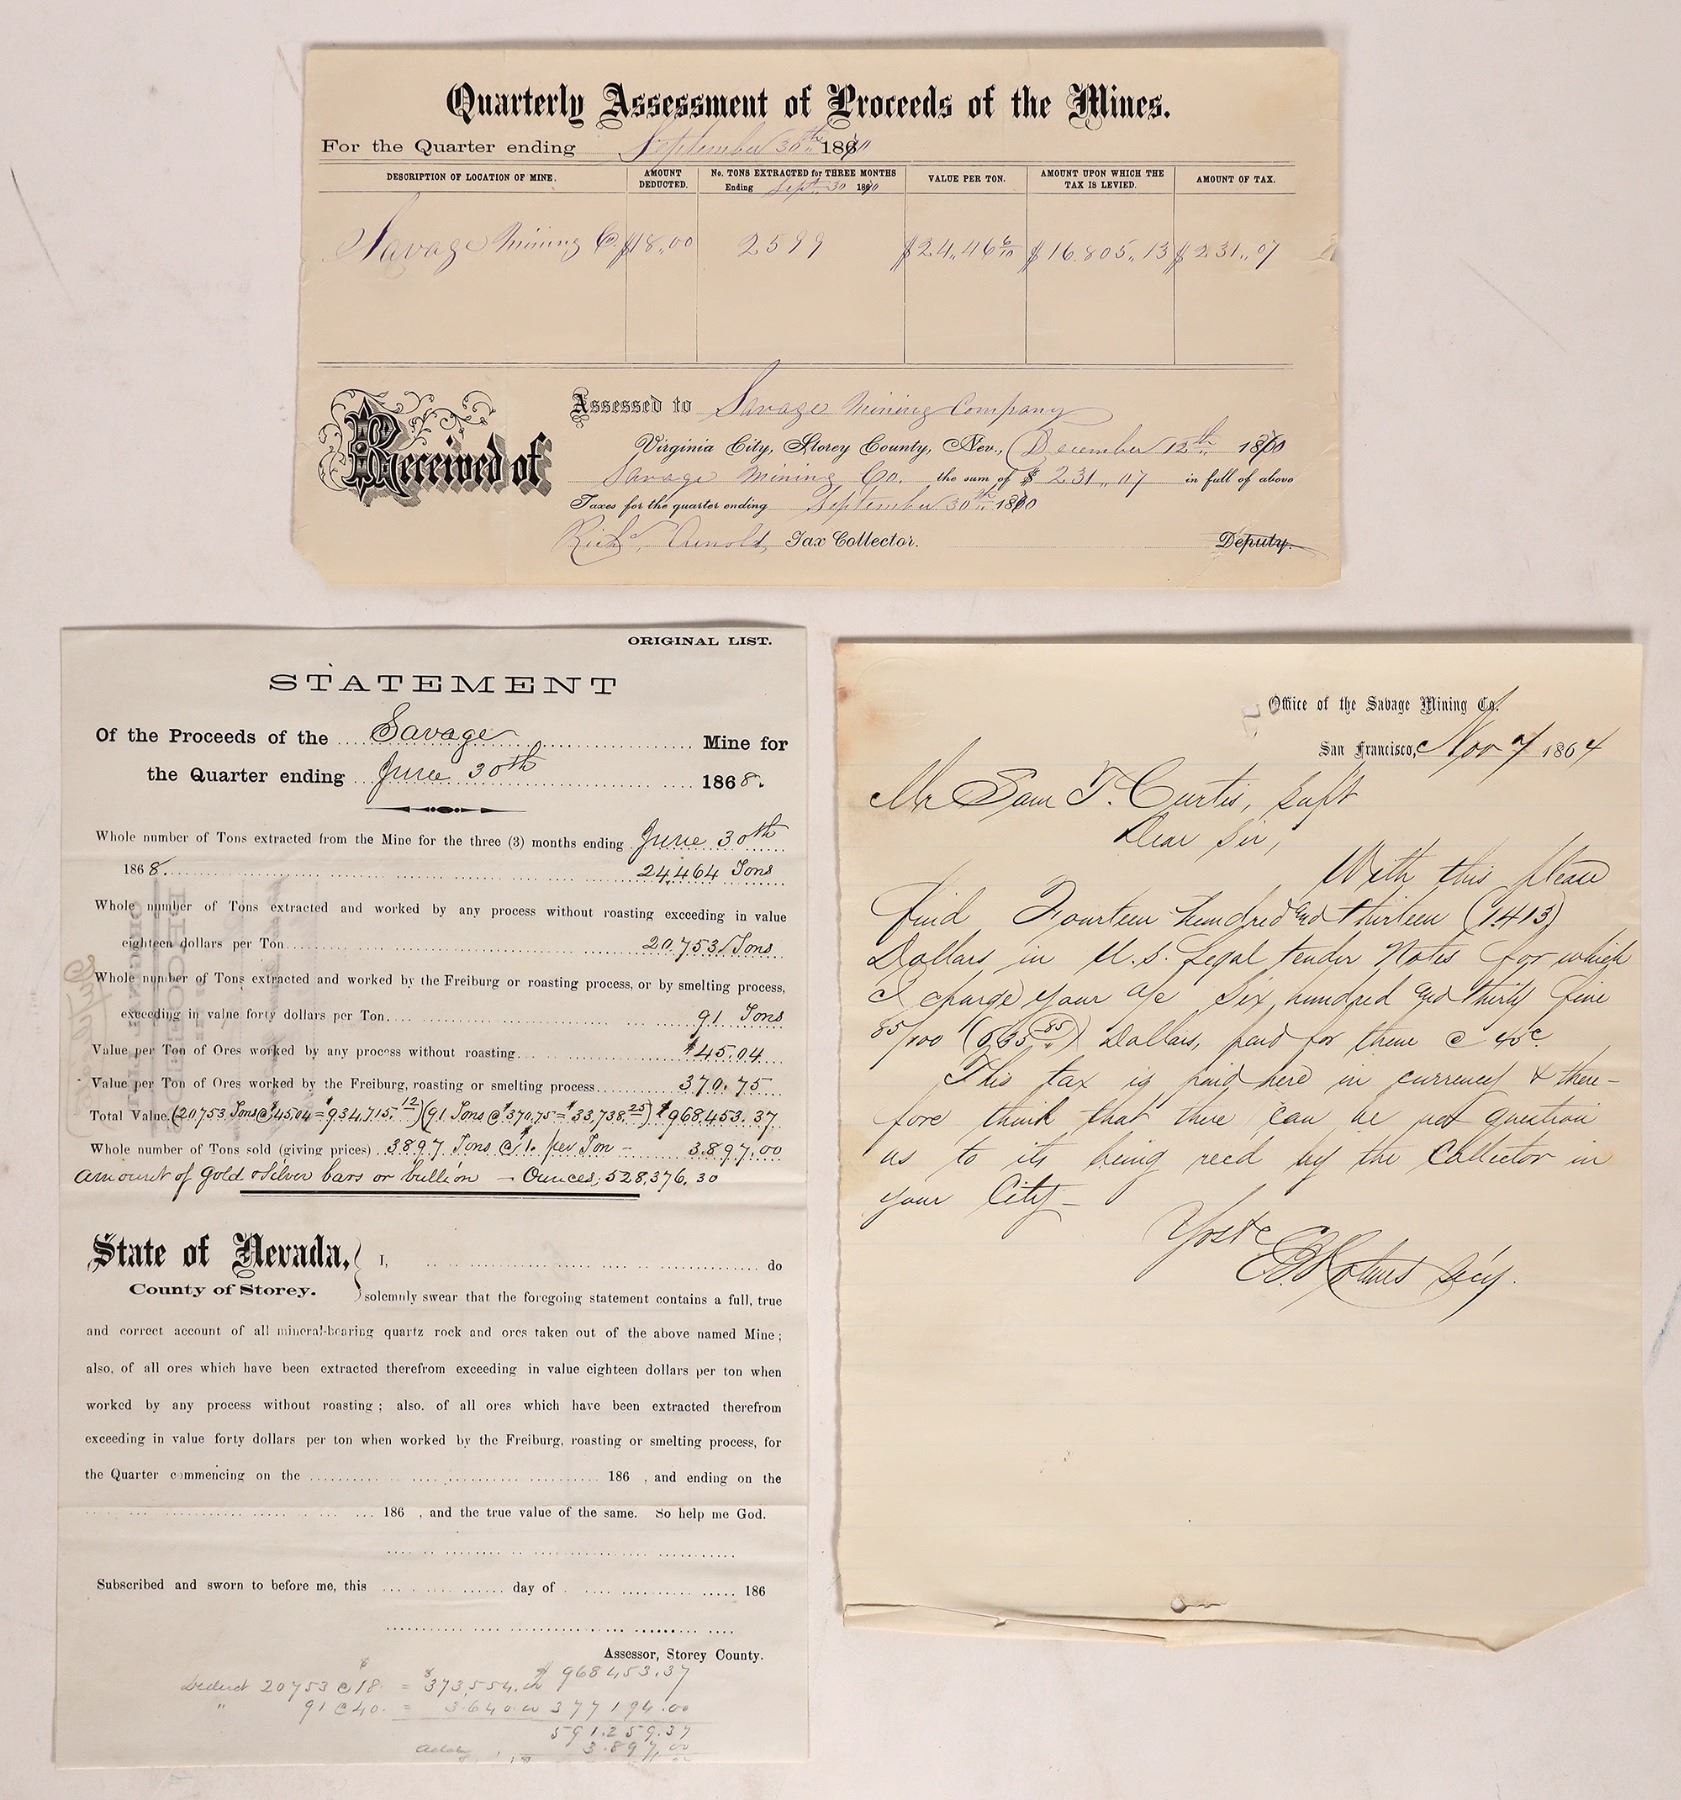 Quarterly Assessment of Proceeds of the Mines.
For the Quarter ending September 30th 1870
DESCRIPTION OF LOCATION OF MINE. AMOUNT DEDUCTED. No. TONS EXTRACTED for THREE MONTHS Ending Sept. 30 1870 VALUE PER TON. AMOUNT UPON WHICH THE TAX IS LEVIED. AMOUNT OF TAX.
Savage Mining Co. $18.00 2599 $24.46 6/10 $16.805.13 $231.07
Received of
Assessed to Savage Mining Company
Virginia City, Storey County, Nev., December 12th 1870
Savage Mining Co. the sum of $231.07 in full of above
Taxes for the quarter ending September 30th 1870
Richd. Arnold, Tax Collector. Deputy.
ORIGINAL LIST.
STATEMENT
Of the Proceeds of the Savage Mine for
the Quarter ending June 30th 1868.
Whole number of Tons extracted from the Mine for the three (3) months ending June 30th
1868. 24,464 Tons
Whole number of Tons extracted and worked by any process without roasting exceeding in value
eighteen dollars per Ton 20,753 Tons
Whole number of Tons extracted and worked by the Freiburg or roasting process, or by smelting process,
exceeding in value forty dollars per Ton 91 Tons
Value per Ton of Ores worked by any process without roasting $45.04
Value per Ton of Ores worked by the Freiburg, roasting or smelting process 370.75
Total Value (20,753 Tons @ $45.04 = $934,715.12) (91 Tons @ $370.75 = $33,738.25) $968,453.37
Whole number of Tons sold (giving prices) 3897 Tons @ $1. per Ton - 3.897.00
Amount of Gold & Silver bars or bullion - Ounces, 528,376.30
State of Nevada,
County of Storey.
I, do
solemnly swear that the foregoing statement contains a full, true
and correct account of all mineral-bearing quartz rock and ores taken out of the above named Mine;
also, of all ores which have been extracted therefrom exceeding in value eighteen dollars per ton when
worked by any process without roasting; also, of all ores which have been extracted therefrom
exceeding in value forty dollars per ton when worked by the Freiburg, roasting or smelting process, for
the Quarter commencing on the 186 , and ending on the
186 , and the true value of the same. So help me God.
Subscribed and sworn to before me, this day of 186
Assessor, Storey County.
$968453.37
Deduct 20753 @ $18 = $373,554.00
" 91 @ 40. = 3.640.00 377194.00
591.259.37
add 3.897.00
Office of the Savage Mining Co.
San Francisco, Nov 7 1864
Mr Sam T. Curtis, Supt
Dear Sir,
With this please
find Fourteen hundred and thirteen (1413)
Dollars in U.S. Legal tender Notes for which
I charge your a/c Six hundred and thirty five
85/100 (635 85/) Dollars, paid for them @ 45c.
This tax is paid here in currency & there-
fore think that there can be not question
as to its being recd by the Collector in
your City -
Yrs &c
E B Holmes Secy.